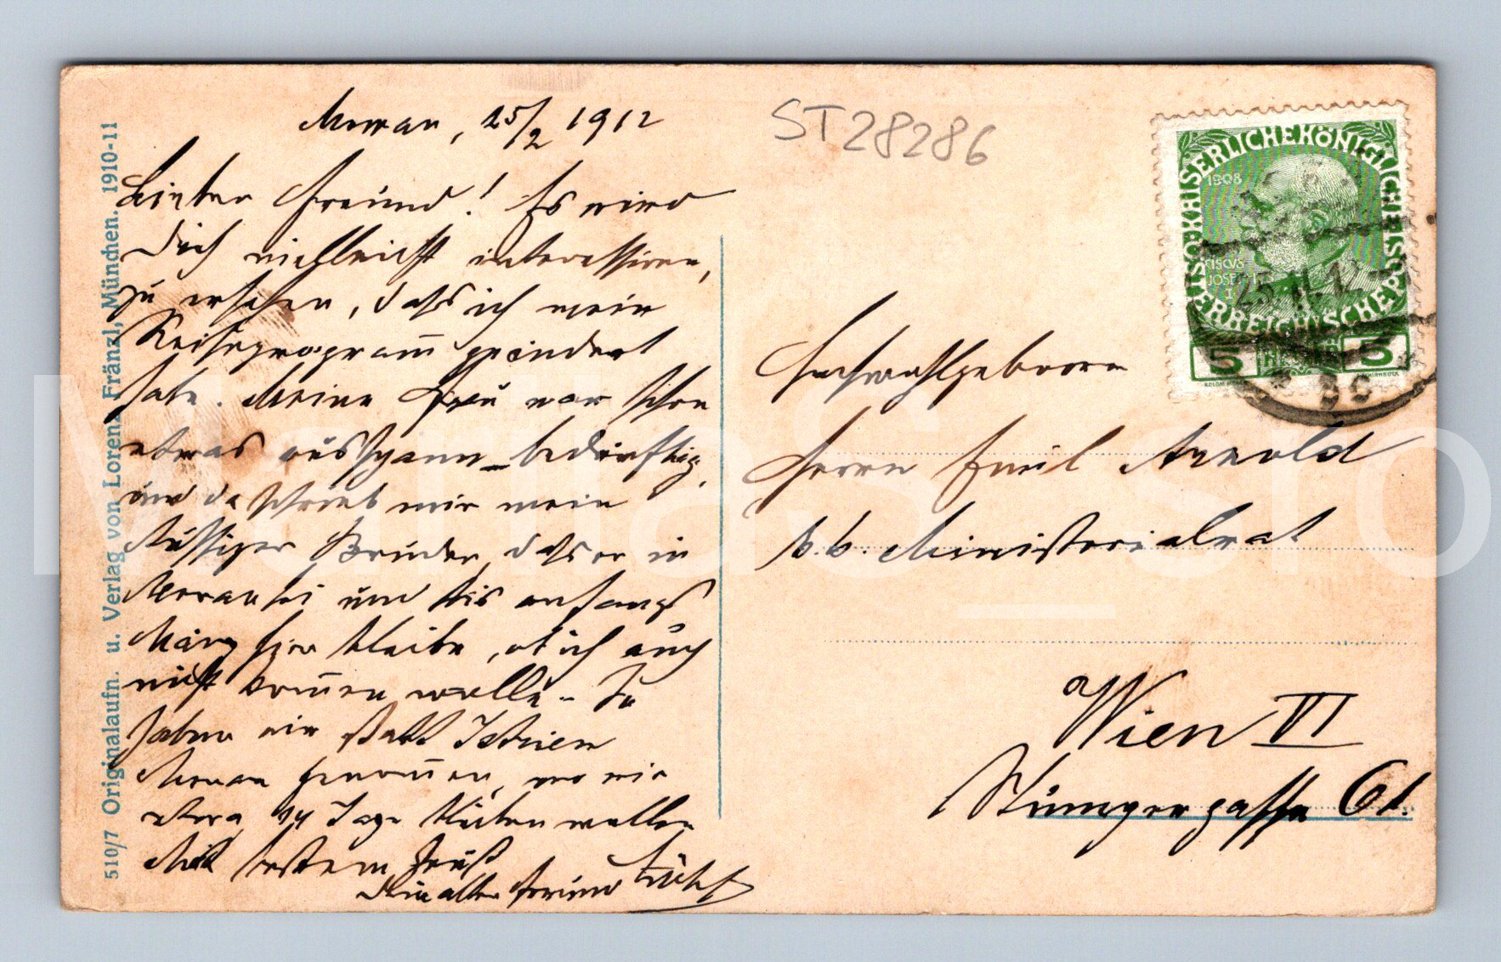 Meran, 25/2 1912
Lieber Freund! Es wird
Dich vielleicht interessiren,
zu ersehen, daß ich mein
Reiseprogram̄ geändert
habe. Meine Frau war schon
etwas ausspann-bedürftig,
und da schrieb mir mein
Bruder, daß er in
Meran sei und bis anfangs
März hier bleibe, ob ich auch
nicht kom̄en wolle. So
haben wir statt Istrien
Meran genom̄en, wo wir
etwa 14 Tage bleiben wollen
Mit bestem Gruß
Dein alter Freund
ST28286
KAISERLICHEKÖNIGLICHE
ÖSTERREICHISCHE POST
1908
JOSEF
I
5 5
25.II.12
Hochwohlgeboren
Herrn Emil Arnold
k. k. Ministerialrat
Wien VI
Stumpergasse 61.
510/7 Originalaufn. u. Verlag von Lorenz Fränzl, München. 1910-11